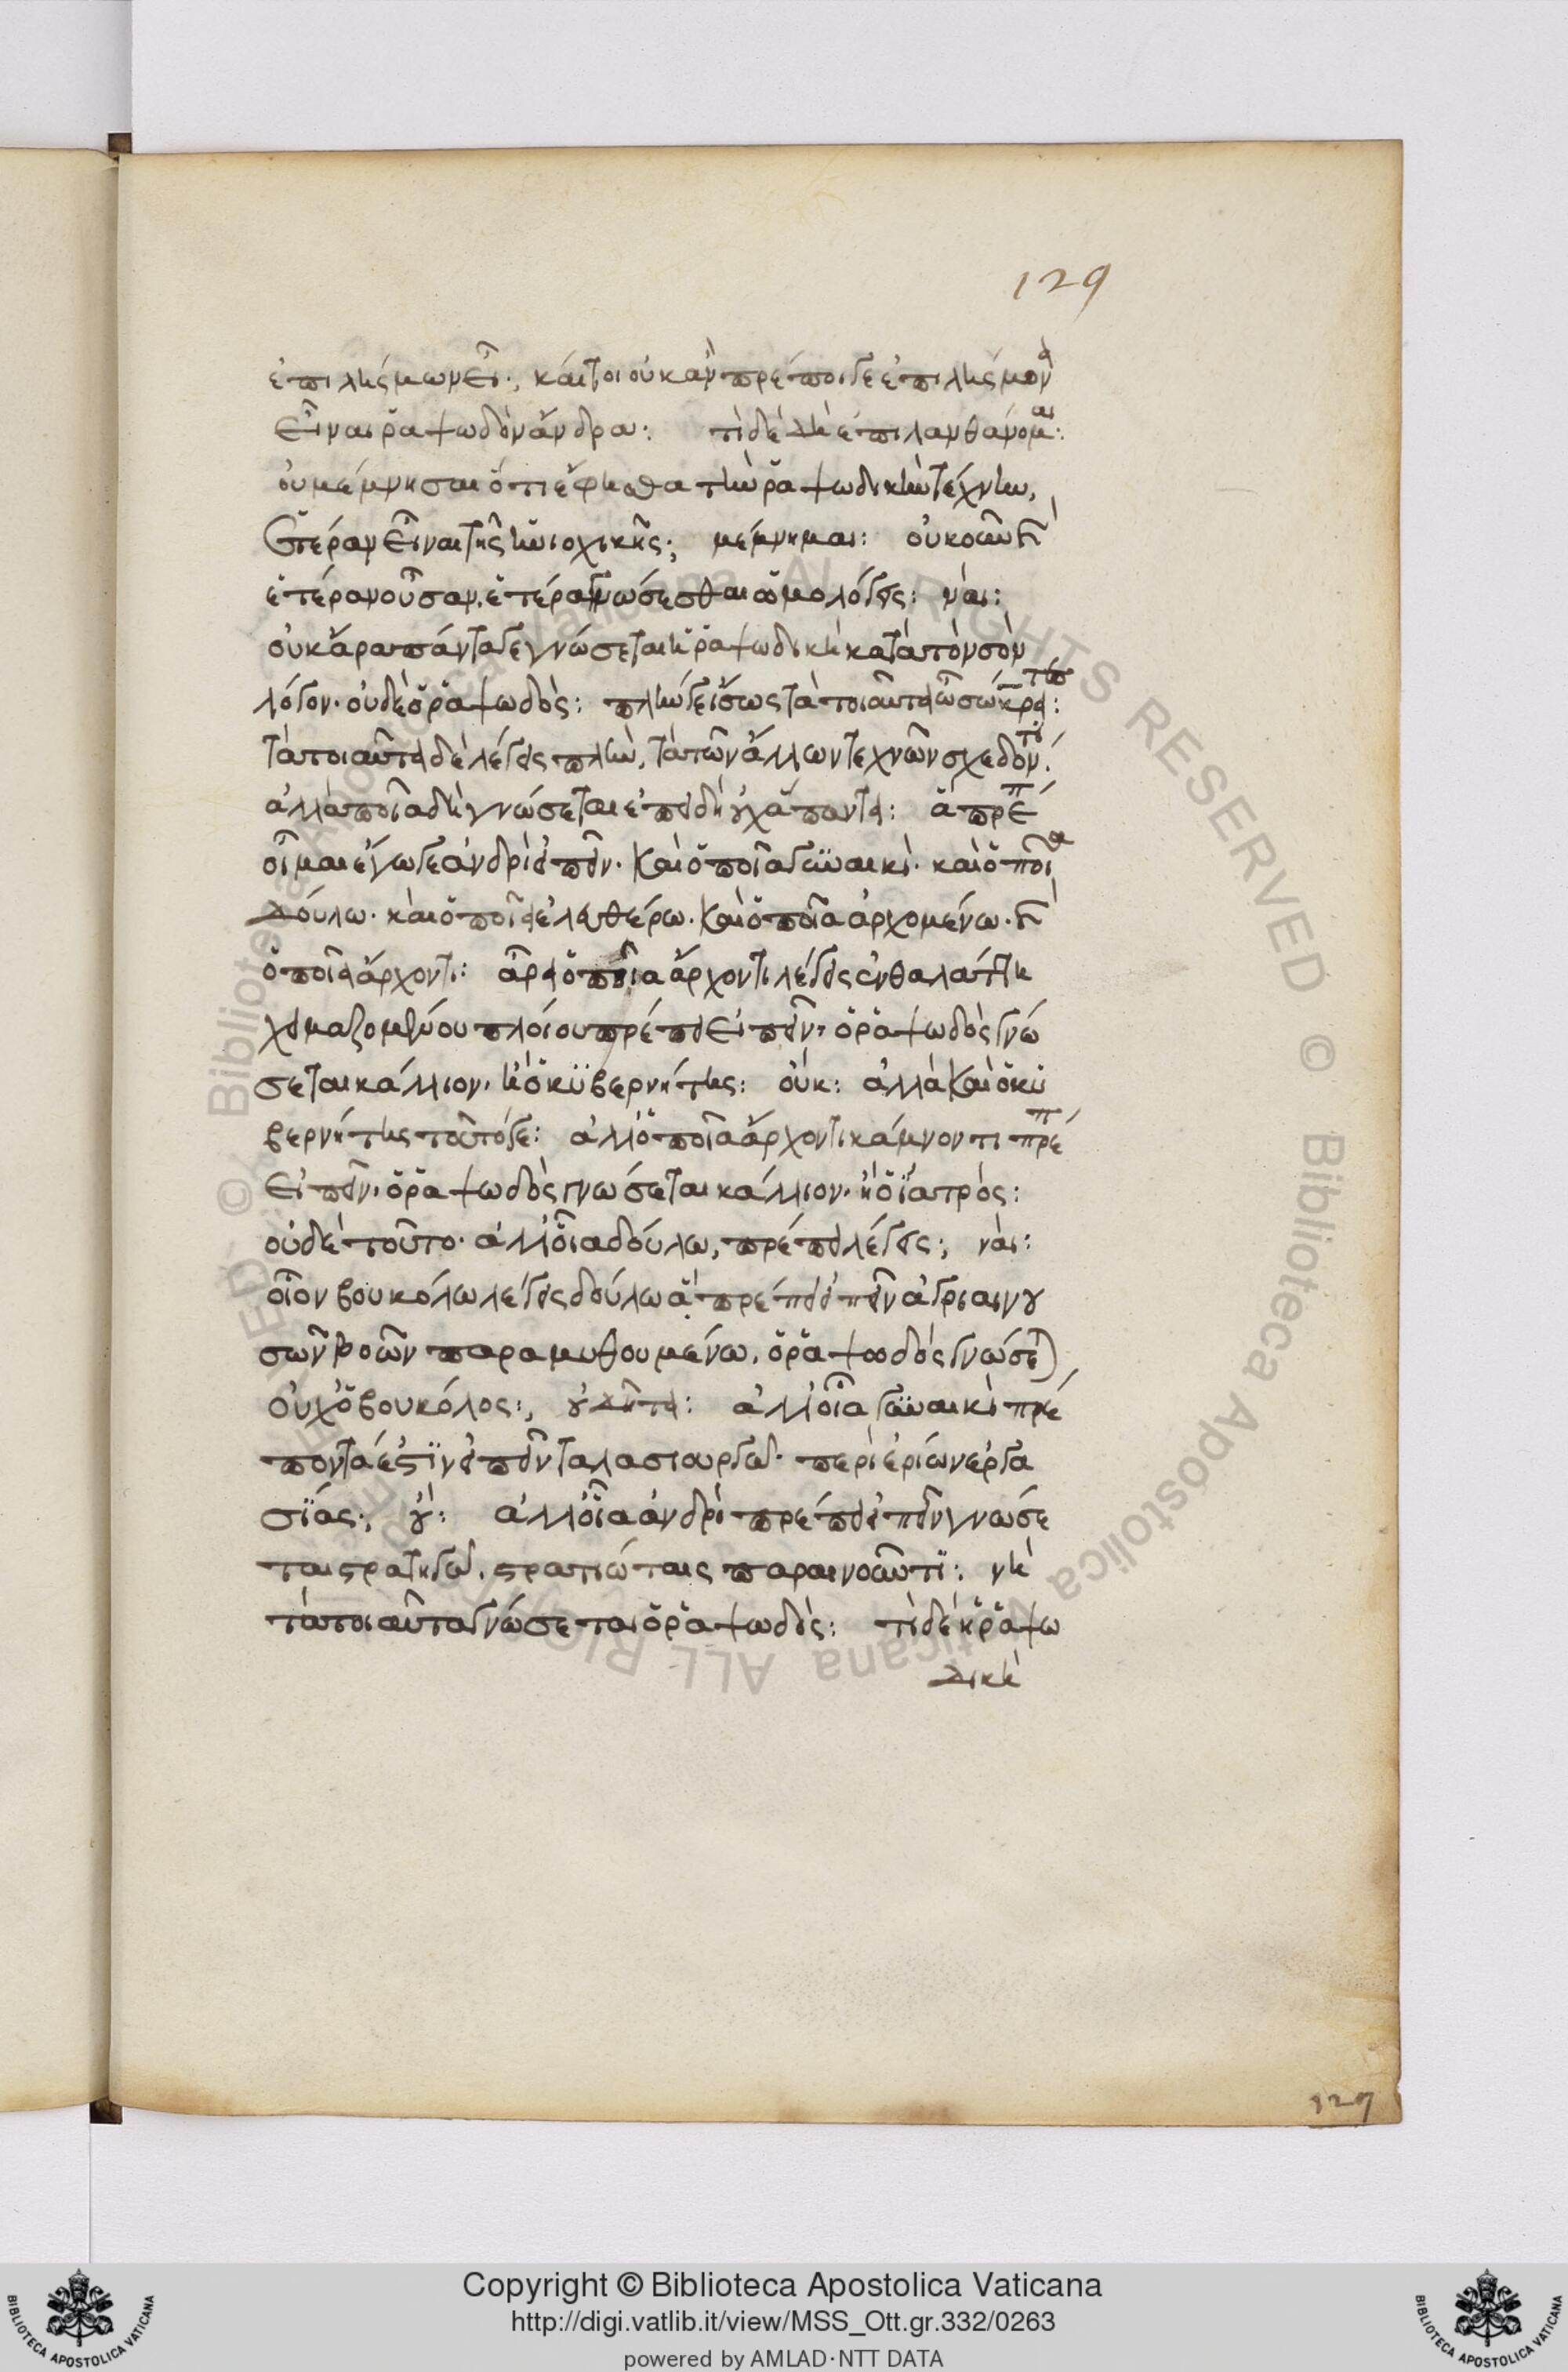 129
ἐπιλήσμων εἶ; καίτοι οὐκ ἂν πρέποι γε ἐπιλήσμονα
εἶναι ῥαψωδὸν ἄνδρα: τί δὲ δὴ ἐπιλανθάνομαι:
οὐ μέμνησαι ὅτι ἔφησθα τὴν ῥαψωδικὴν τέχνην,
ἑτέραν εἶναι τῆς ἡνιοχικῆς; μέμνημαι: οὐκοῦν καὶ
ἑτέραν οὖσαν. ἕτερα γνώσεσθαι ὡμολόγεις: ναί:
οὐκ ἄρα πάντα γε γνώσεται ἡ ῥαψωδικὴ κατὰ τὸν σὸν
λόγον. οὐδὲ ὁ ῥαψωδὸς: πλήν γε ἴσως τὰ τοιαῦτα ὦ σώκρατες:
τὰ τοιαῦτα δὲ λέγεις πλὴν, τὰ τῶν ἄλλων τεχνῶν σχεδόν τι.
ἀλλὰ ποῖα δὴ γνώσεται ἐπειδὴ οὐχ ἅπαντα: ἃ πρέπει
οἶμαι ἔγωγε ἀνδρὶ εἰπεῖν. καὶ ὁποῖα γυναικί. καὶ ὁποῖα
δούλω. καὶ ὁποῖα ἐλευθέρω. καὶ ὁποῖα ἀρχομένω. καὶ
ὁποῖα ἄρχοντι: ἆρα ὁποῖα ἄρχοντι λέγεις ἐν θαλάττη
χειμαζομένου πλοίου πρέπει εἰπεῖν, ὁ ῥαψωδὸς γνώ
σεται κάλλιον, ἢ ὁ κυβερνήτης: οὔκ: ἀλλὰ καὶ ὁ κυ
βερνήτης τοῦτό γε: ἀλλ' ὁποῖα ἄρχοντι κάμνοντι πρέπει
εἰπεῖν, ὁ ῥαψωδὸς γνώσεται κάλλιον. ἢ ὁ ἰατρὸς:
οὐδὲ τοῦτο. ἀλλ' οἷα δούλω, πρέπει λέγεις; ναί:
οἷον βουκόλω λέγεις δούλω ἃ πρέπει εἰπεῖν ἀγριαινου
σῶν βοῶν παραμυθουμένω, ὁ ῥαψωδὸς γνώσεται
οὐχ ὁ βουκόλος; οὐ δῆτα: ἀλλ' οἷα γυναικὶ πρέ
ποντά ἐστιν εἰπεῖν ταλασιουργῶ. περὶ ἐρίων ἐργα
σίας; οὔ: ἀλλ' οἷα ἀνδρὶ πρέπει εἰπεῖν γνώσε
ται στρατηγῶ. στρατιώταις παραινοῦντι: νὴ
τὰ τοιαῦτα γνώσεται ὁ ῥαψωδὸς: τί δὲ ἡ ῥαψω
δικὴ
129
Copyright © Biblioteca Apostolica Vaticana
http://digi.vatlib.it/view/MSS_Ott.gr.332/0263
powered by AMLAD·NTT DATA